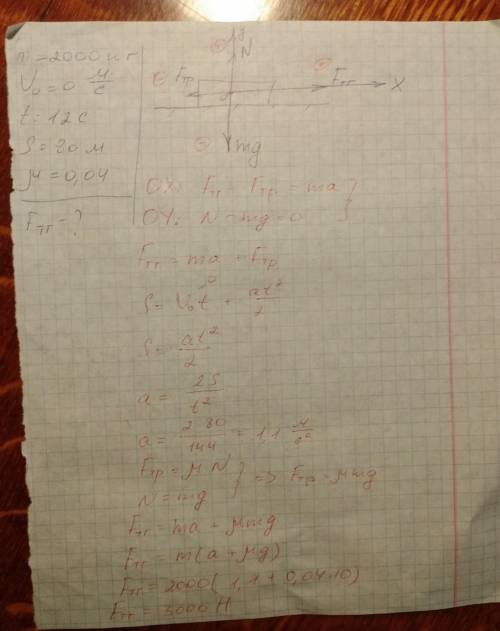 m = 2000 кг
V₀ = 0 м/с
t = 12 с
S = 80 м
μ = 0,04
Fтг - ?
y
N
Fтр
Fтг
X
mg
OX: Fтг - Fтр = ma
OY: N - mg = 0
Fтг = ma + Fтр
S = V₀t + at²/2
0
S = at²/2
a = 2S/t²
a = 2·80/144 = 1,1 м/с²
Fтр = μN
N = mg
=> Fтр = μmg
Fтг = ma + μmg
Fтг = m(a + μg)
Fтг = 2000(1,1 + 0,04·10)
Fтг = 3000 Н